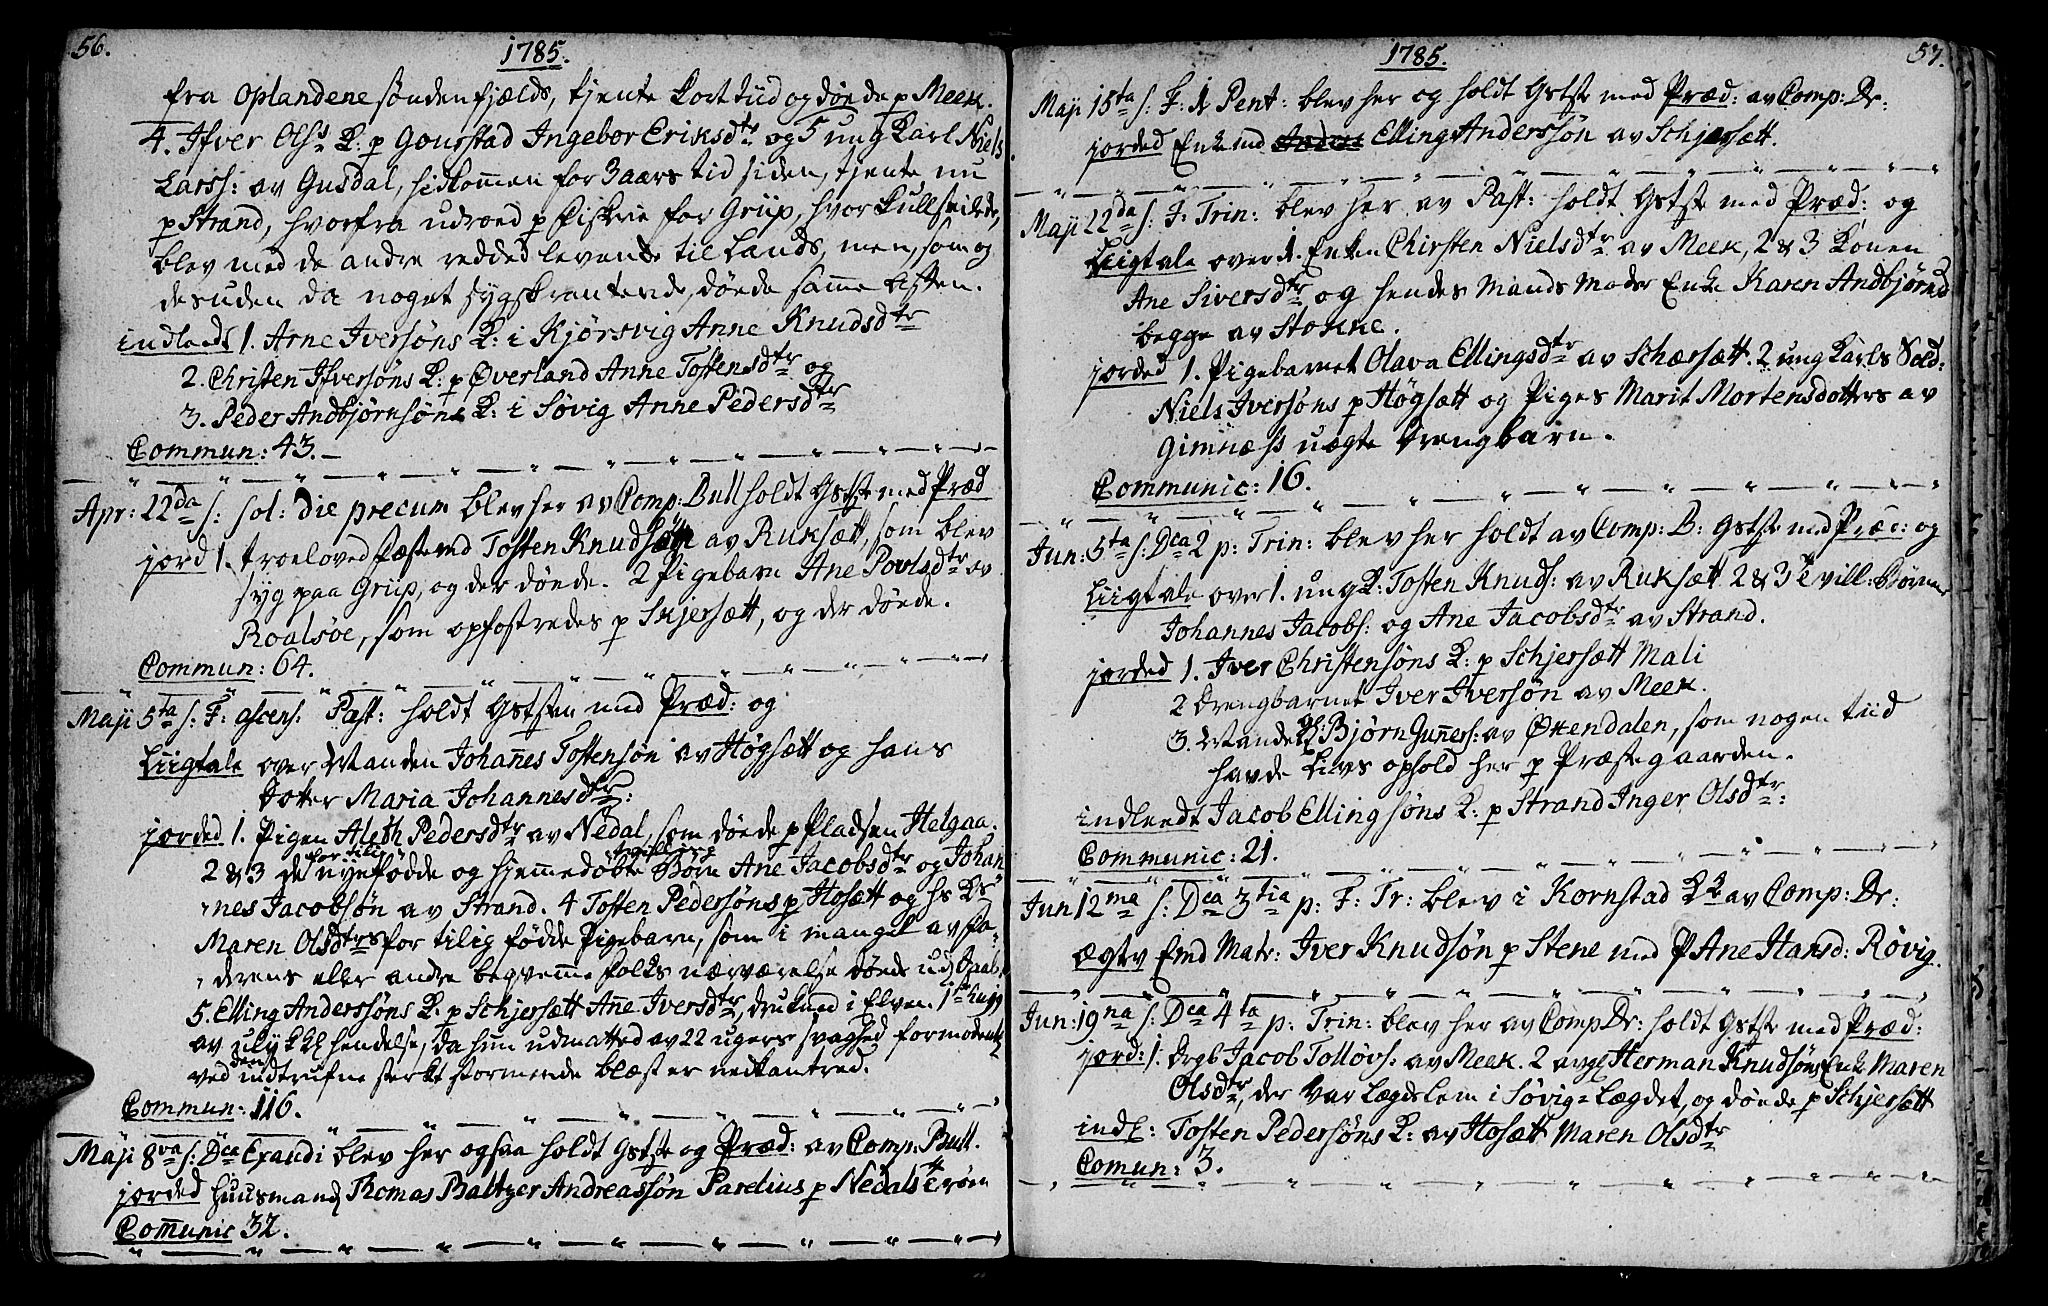 56.
1785.
fra Oplandene søndenfjælds, tjente kort tiid og døde p Meek.
4. Ifver Olss K: p Gourstad Ingebor Eriksdtr og 5 ung Karl Niels
Larss: av Gusdal, hidkommen for 3 aars tid siden, tjente nu
p Strand, hvorfra udroed p Fiskrie for Griip, hvor kullseilede,
blev med de andre redded levende til Lands, men, som og
desuden da noget sygskrantende, døede samme Aften.
indleedt 1. Arne Iversøns K: i Kjørsvig Anne Knudsdtr
2. Christen Ifversøns K: p Øverland Anne Tostensdtr og
3. Peder Andbjørnsøns K: i Søvig Anne Pedersdtr
Commun: 43.
Apr: 22da s: sol: die precum blev her av Comp: Bull holdt Gstste med Præd
jord 1. troeloved Fæstemd Tosten Knudsøn av Ruksætt, som blev
syg paa Griip, og der døede. 2 Pigebarn Ane Povlsdtr av
Roalsøe, som opfostredes p Skjersætt, og der døede.
Commun: 64.
Maji 5ta s: F: ascens: Past: holdt Gststen med Præd: og
Liigtale over Manden Johannes Tostensøn av Høgsætt og hans
Dotter Maria Johannesdtr:
jorded 1. Pigen Aleth Pedersdtr av Nedal, som døede p Pladsen Helgaa.
2 & 3 de for tilig nyefødde og hjemmedøbte tvilling Børn Ane Jacobsdtr og Johan
nes Jacobsøn av Strand. 4 Tosten Pedersøns p Hosætt og hs Ks
Maren Olsdtrs for tilig fødde Pigebarn, som i mangel av Fa-
derens eller andre beqvemme folks nærværelse døede udøbt
5. Elling Anderssøns K: p Schjersætt Ane Iversdtr, drukned i Elven
av ulykkl hendelse, da hun udmatted av 22 ugers svaghed formodentl
ved den indtrufne sterkt stormende blæst er nedkantred.
Commun: 116.
Maji 8va s: Dca Exaudi blev her ogsaa holdt Gstste og Præd: av Comp: Bull.
jorded Huusmand Thomas Baltzer Andreassøn Parelius p Nedals
Comunic 32.
57.
1785.
Maji 15ta s: F: 1 Pent: blev her og holdt Gstste med Præd: av Comp: Br:
jorded Enkemd Elling Anderssøn av Schjersætt.
Maji 22da s: F: Trin: blev her av Past: holdt Gstste med Præd: og
Liigtale over 1. Enken Chirsten Nielsdtr av Meek, 2 & 3 Konen
Ane Siversdtr og hendes Mands Moder Enke Karen Andbjørnsd
begge av Stokke.
jorded 1. Pigebarnet Olava Ellingsdtr av Schærsætt. 2 ung Karls Sold:
Niels Iversøns p Høgsætt og Piges Marit Mortensdotters av
Gimnæss uægte Drengbarn.
Communic: 16.
Jun: 5ta s: Dca 2 p: Trin: blev her holdt av Comp: B: Gstste med Præd: og
Liigtale over 1. ung K: Tosten Knuds: av Ruksætt 2 & 3 Tvill: Børnene
Johannes Jacobs: og Ane Jacobsdtr av Strand.
jorded 1. Iver Christensøns K: p Schjersætt Mali
2 Drengbarnet Iver Iversøn av Meek.
3. Vande gl: Bjørn Guners: av Økendalen, som nogen tiid
havde Livs ophold her p Præstegaarden.
indleedt Jacob Ellingsøns K: p Strand Inger Olsdtr:
Communic: 21.
Jun 12ma s: Dca 3tia p: F: Tr: blev i Kornstad Kk av Comp: Br:
ægtv Emd Matr: Iver Knudsøn p Stene med P Ane Hansd: Røvig.
Jun: 19na s: Dca 4ta p: Trin: blev her av Comp Br: holdt Gstste med Præd:
jord: 1. Drgb Jacob Tolløvs: av Meek. 2 avgl Herman Knudsøns Enk Maren
Olsdtr, der var Lægdslem i Søvig-Lægdet, og døede p Schjersætt
indl: Tosten Pedersøns K: av Hosætt Maren Olsdtr
Comun: 3.